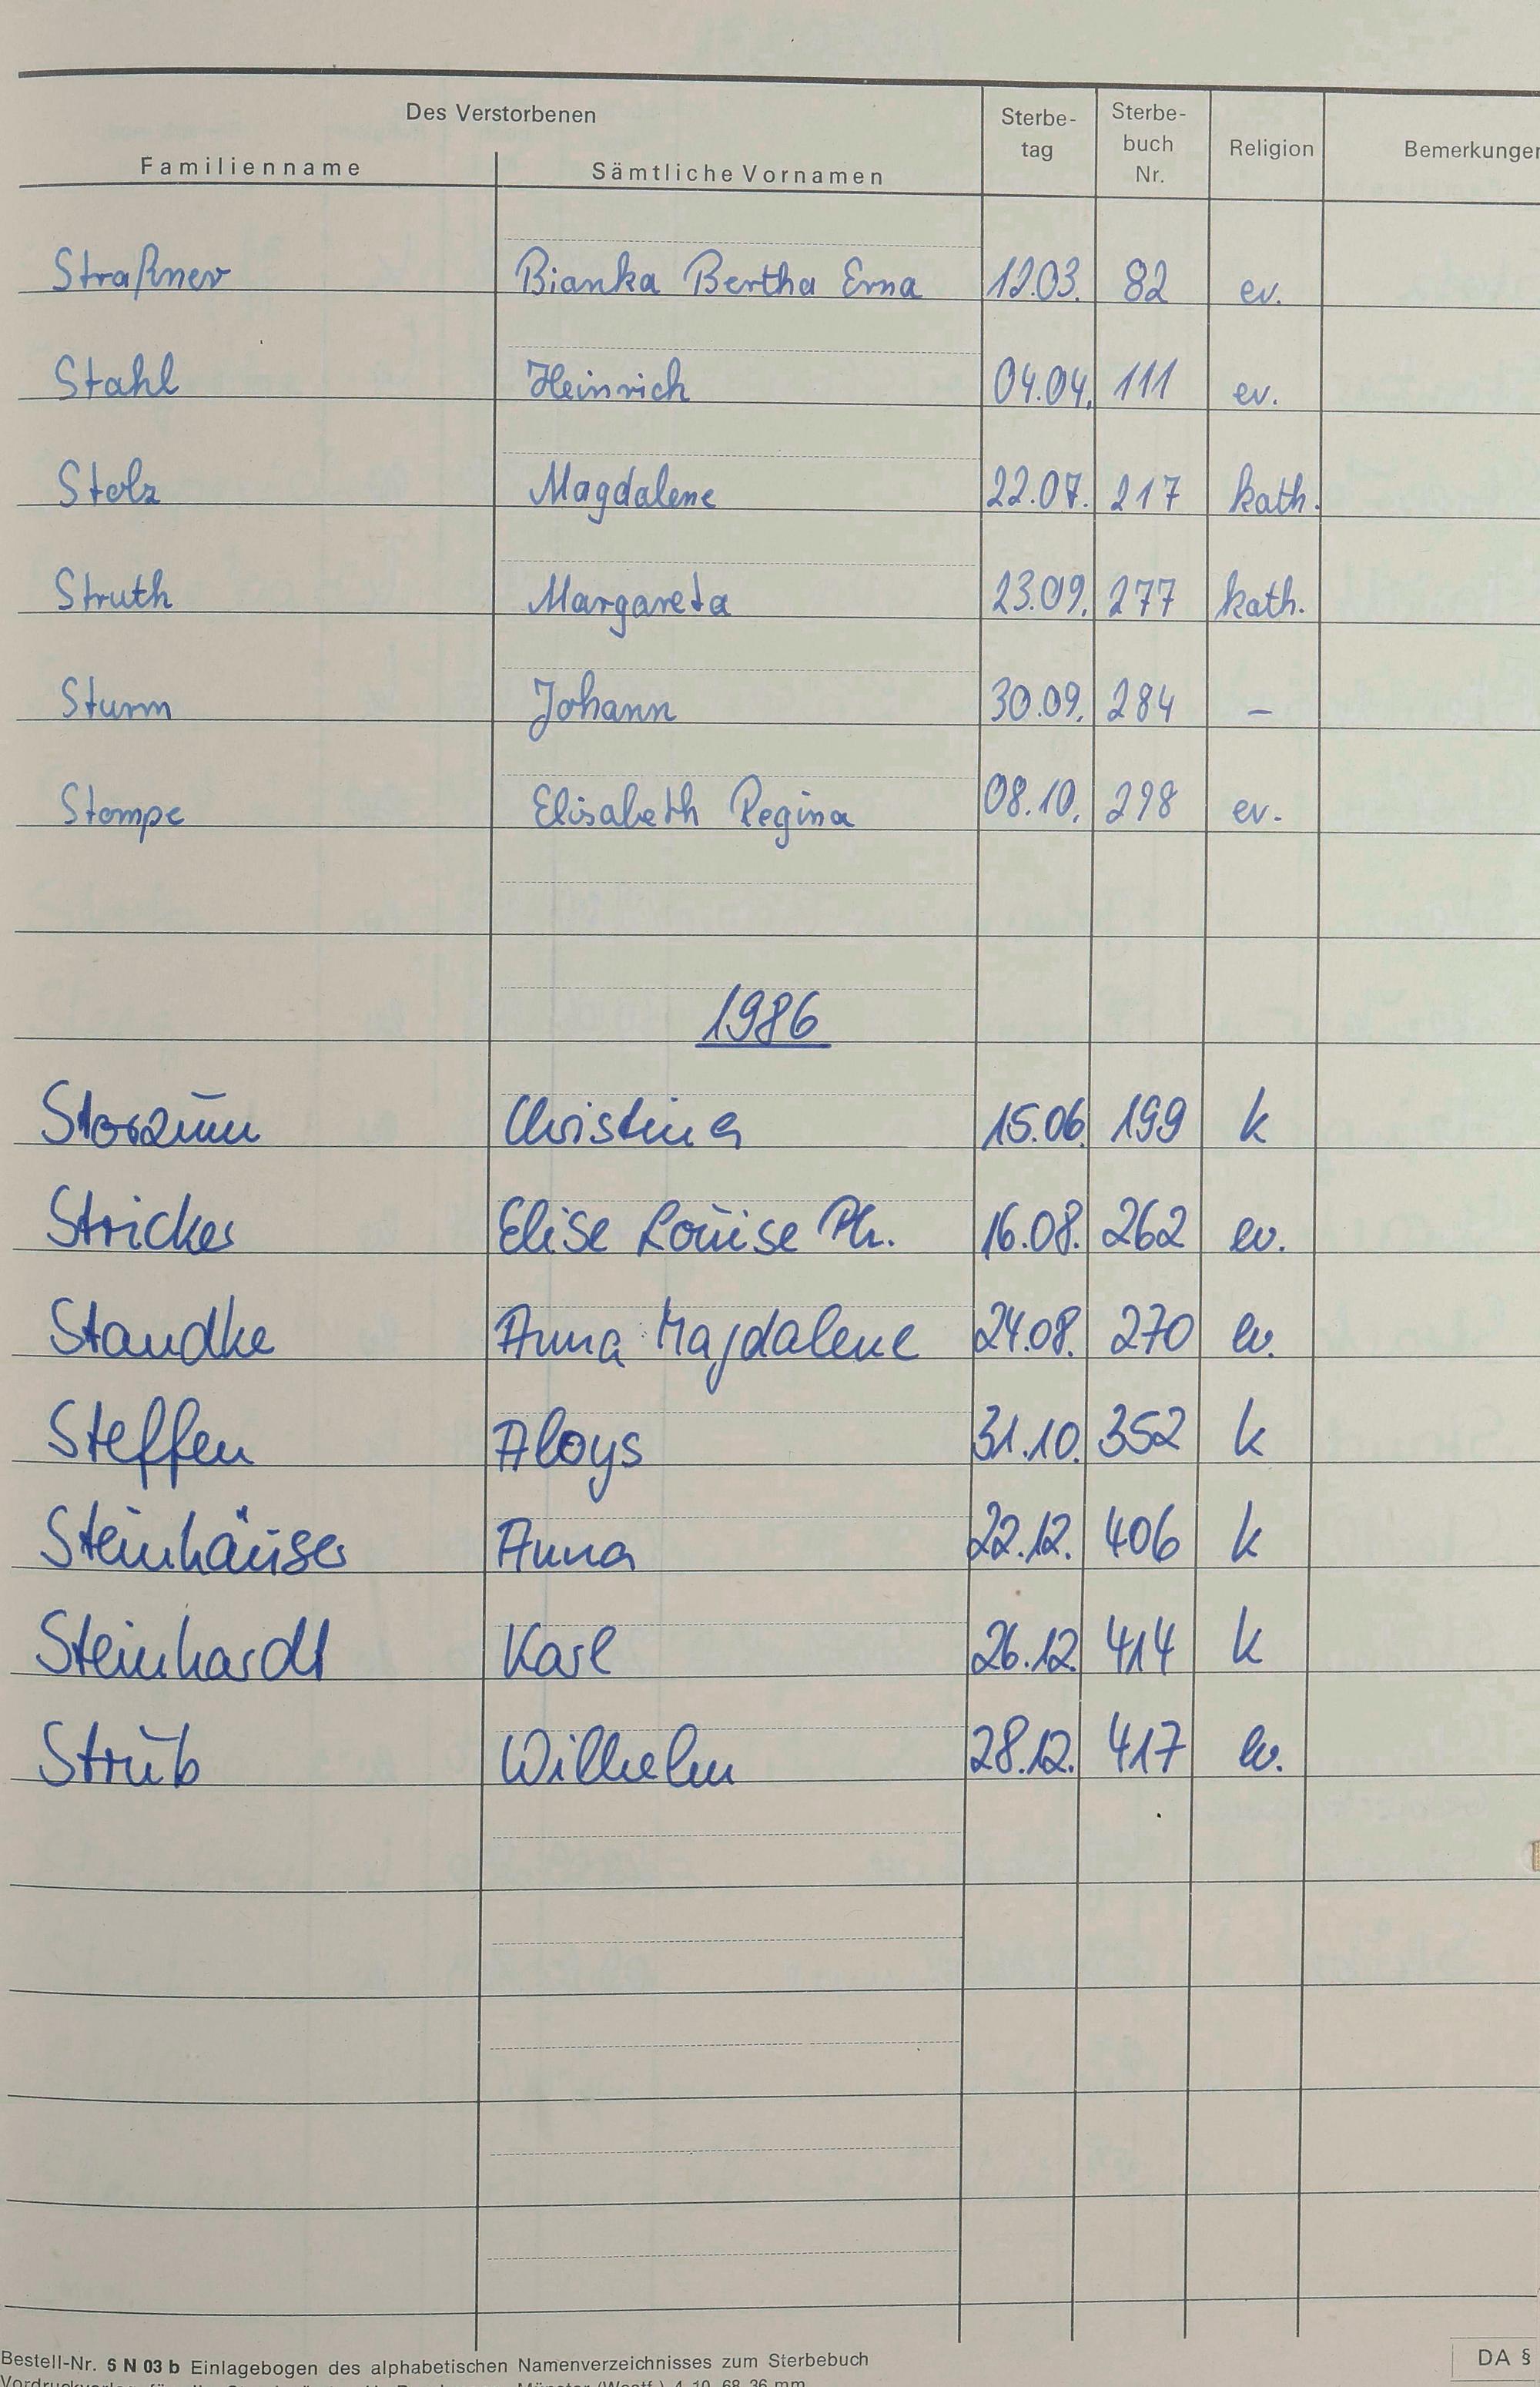 Des Verstorbenen
Familienname Sämtliche Vornamen Sterbe-tag Sterbe-buch Nr. Religion Bemerkungen
Straßner Bianka Bertha Erna 12.03. 82 ev.
Stahl Heinrich 04.04. 111 ev.
Stolz Magdalene 22.07. 217 kath.
Struth Margareta 23.09. 277 kath.
Sturm Johann 30.09. 284 –
Stompe Elisabeth Regina 08.10. 298 ev.
1986
Christina 15.06. 199 k
Stricker Elise Louise Ph. 16.08. 262 ev.
Standke Anna Magdalene 24.08. 270 ev.
Steffen Aloys 31.10. 352 k
Steinhäuser Anna 22.12. 406 k
Steinhardt Karl 26.12. 414 k
Strub Wilhelm 28.12. 417 ev.
Bestell-Nr. 5 N 03 b Einlagebogen des alphabetischen Namenverzeichnisses zum Sterbebuch
DA §